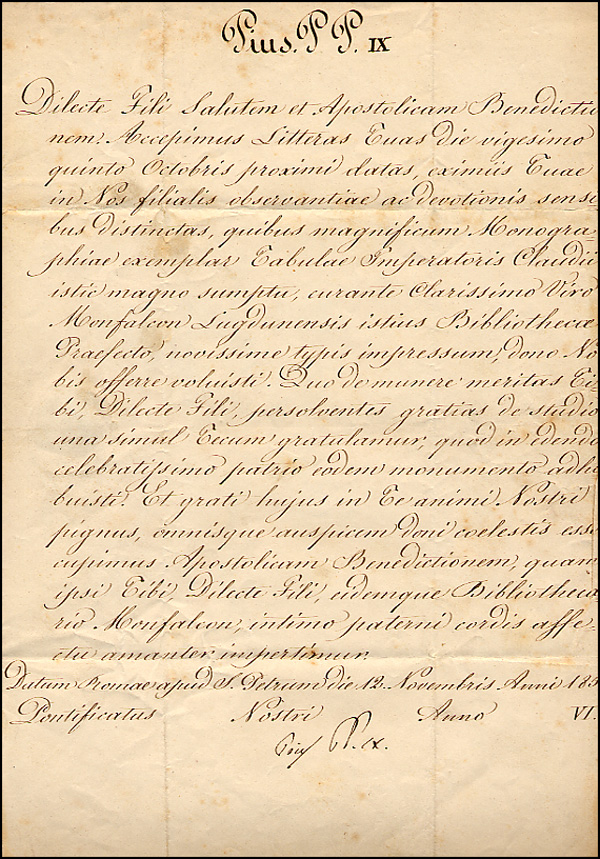 Pius. P P. IX
Dilecte Fili Salutem et Apostolicam Benedictio
nem. Accepimus Litteras Tuas die vigesimo
quinto Octobris proximi datas, eximiis Tuae
in Nos filialis observantiae ac devotionis sensi
bus distinctas, quibus magnificum Monogra-
phiae exemplar Tabulae Imperatoris Claudii
istic magno sumptu, curante Clarissimo Viro
Monfalcon Lugdunensis istius Bibliothecae
Praefecto, novissime typis impressum, dono No
bis offerre voluisti. Quo de munere meritas Ti-
bi, Dilecte Fili, persolventes gratias de studio
una simul Tecum gratulamur, quod in edendo
celebratissimo patrio eodem monumento adhi
buisti. Et grati hujus in Te animi Nostri
pignus, omnisque auspicem doni coelestis esse
cupimus Apostolicam Benedictionem, quam
ipsi Tibi, Dilecte Fili, eidemque Bibliotheca
rio Monfalcon, intimo paterni cordis affe-
ctu amanter impertimur.
Datum Romae apud S. Petrum die 12 Novembris Anni 185
Pontificatus Nostri Anno VI.
Pius PP. IX.